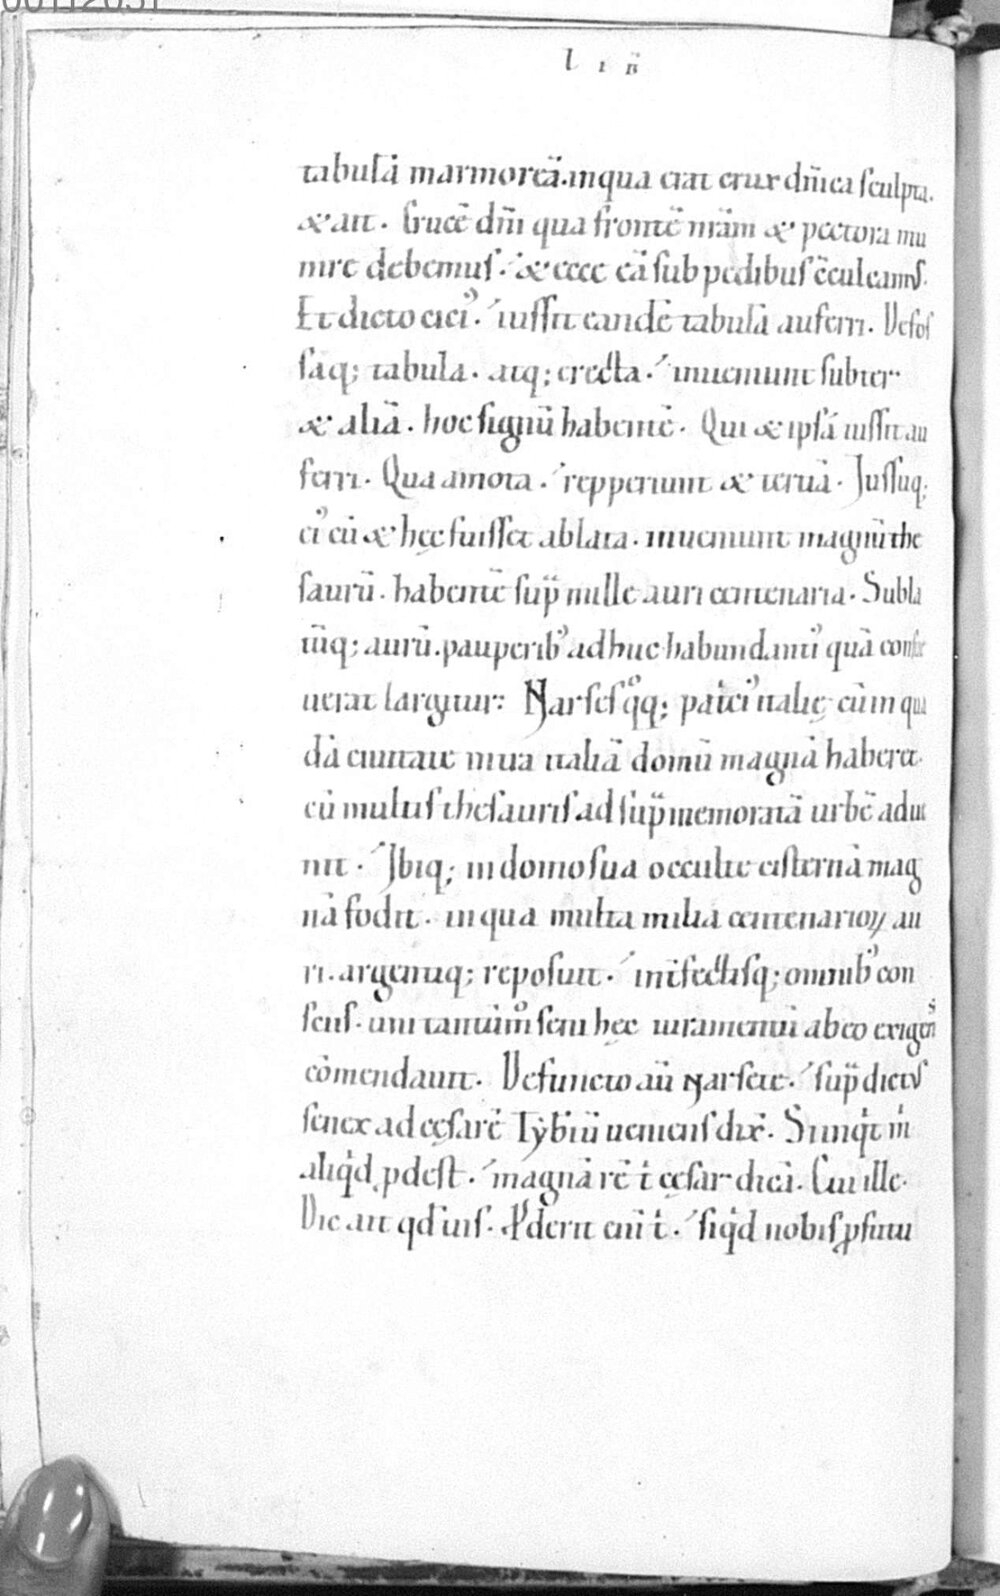 l ı b̄
tabulā marmoreā. in qua erat crux dn̄ica sculpta.
& ait. Crucē dn̄i qua frontē nr̄am & pectora mu
nire debemus. & ecce eā sub pedibus c̄culcamus.
Et dicto cici᾽. iussit eandē tabulā auferri. Defos
saq; tabula. atq; erecta. inueniunt subter
& aliā. hoc signū habentē. Qui & ipsā iussit au
ferri. Qua amota. repperiunt & tertiā. Jussuq;
ei᾽ cū & hęc fuisset ablata. inueniunt magnū the
saurū. habentē sup̄ mille auri centenaria. Subla
tūq; aurū. pauperib᾽ adhuc habundanti᾽ quā consue
uerat largitur. Narses q°q; patci᾽ italię cū in qua
dā ciuitate intra italiā domū magnā haberet.
cū multis thesauris ad sup̄memoratā urbē adue
nit. Jbiq; in domo sua occulte cisternā mag
nā fodit. in qua multa milia centenarioꝝ au
ri. argentiq; reposuit. int̄fectisq; omnib᾽ con
sciis. uni tantūm° seni hęc iuramentū ab eo exigens
cōmendauit. Defuncto aū Narsete. sup̄dictus
senex ad cęsarē Tyb̄iū ueniens dix̄. Si inqt m
aliqd ꝓdest. magnā rē t cęsar dicā. Cui ille.
Dic ait qd uis. Pderit eni t. siqd nobis ꝓfutu